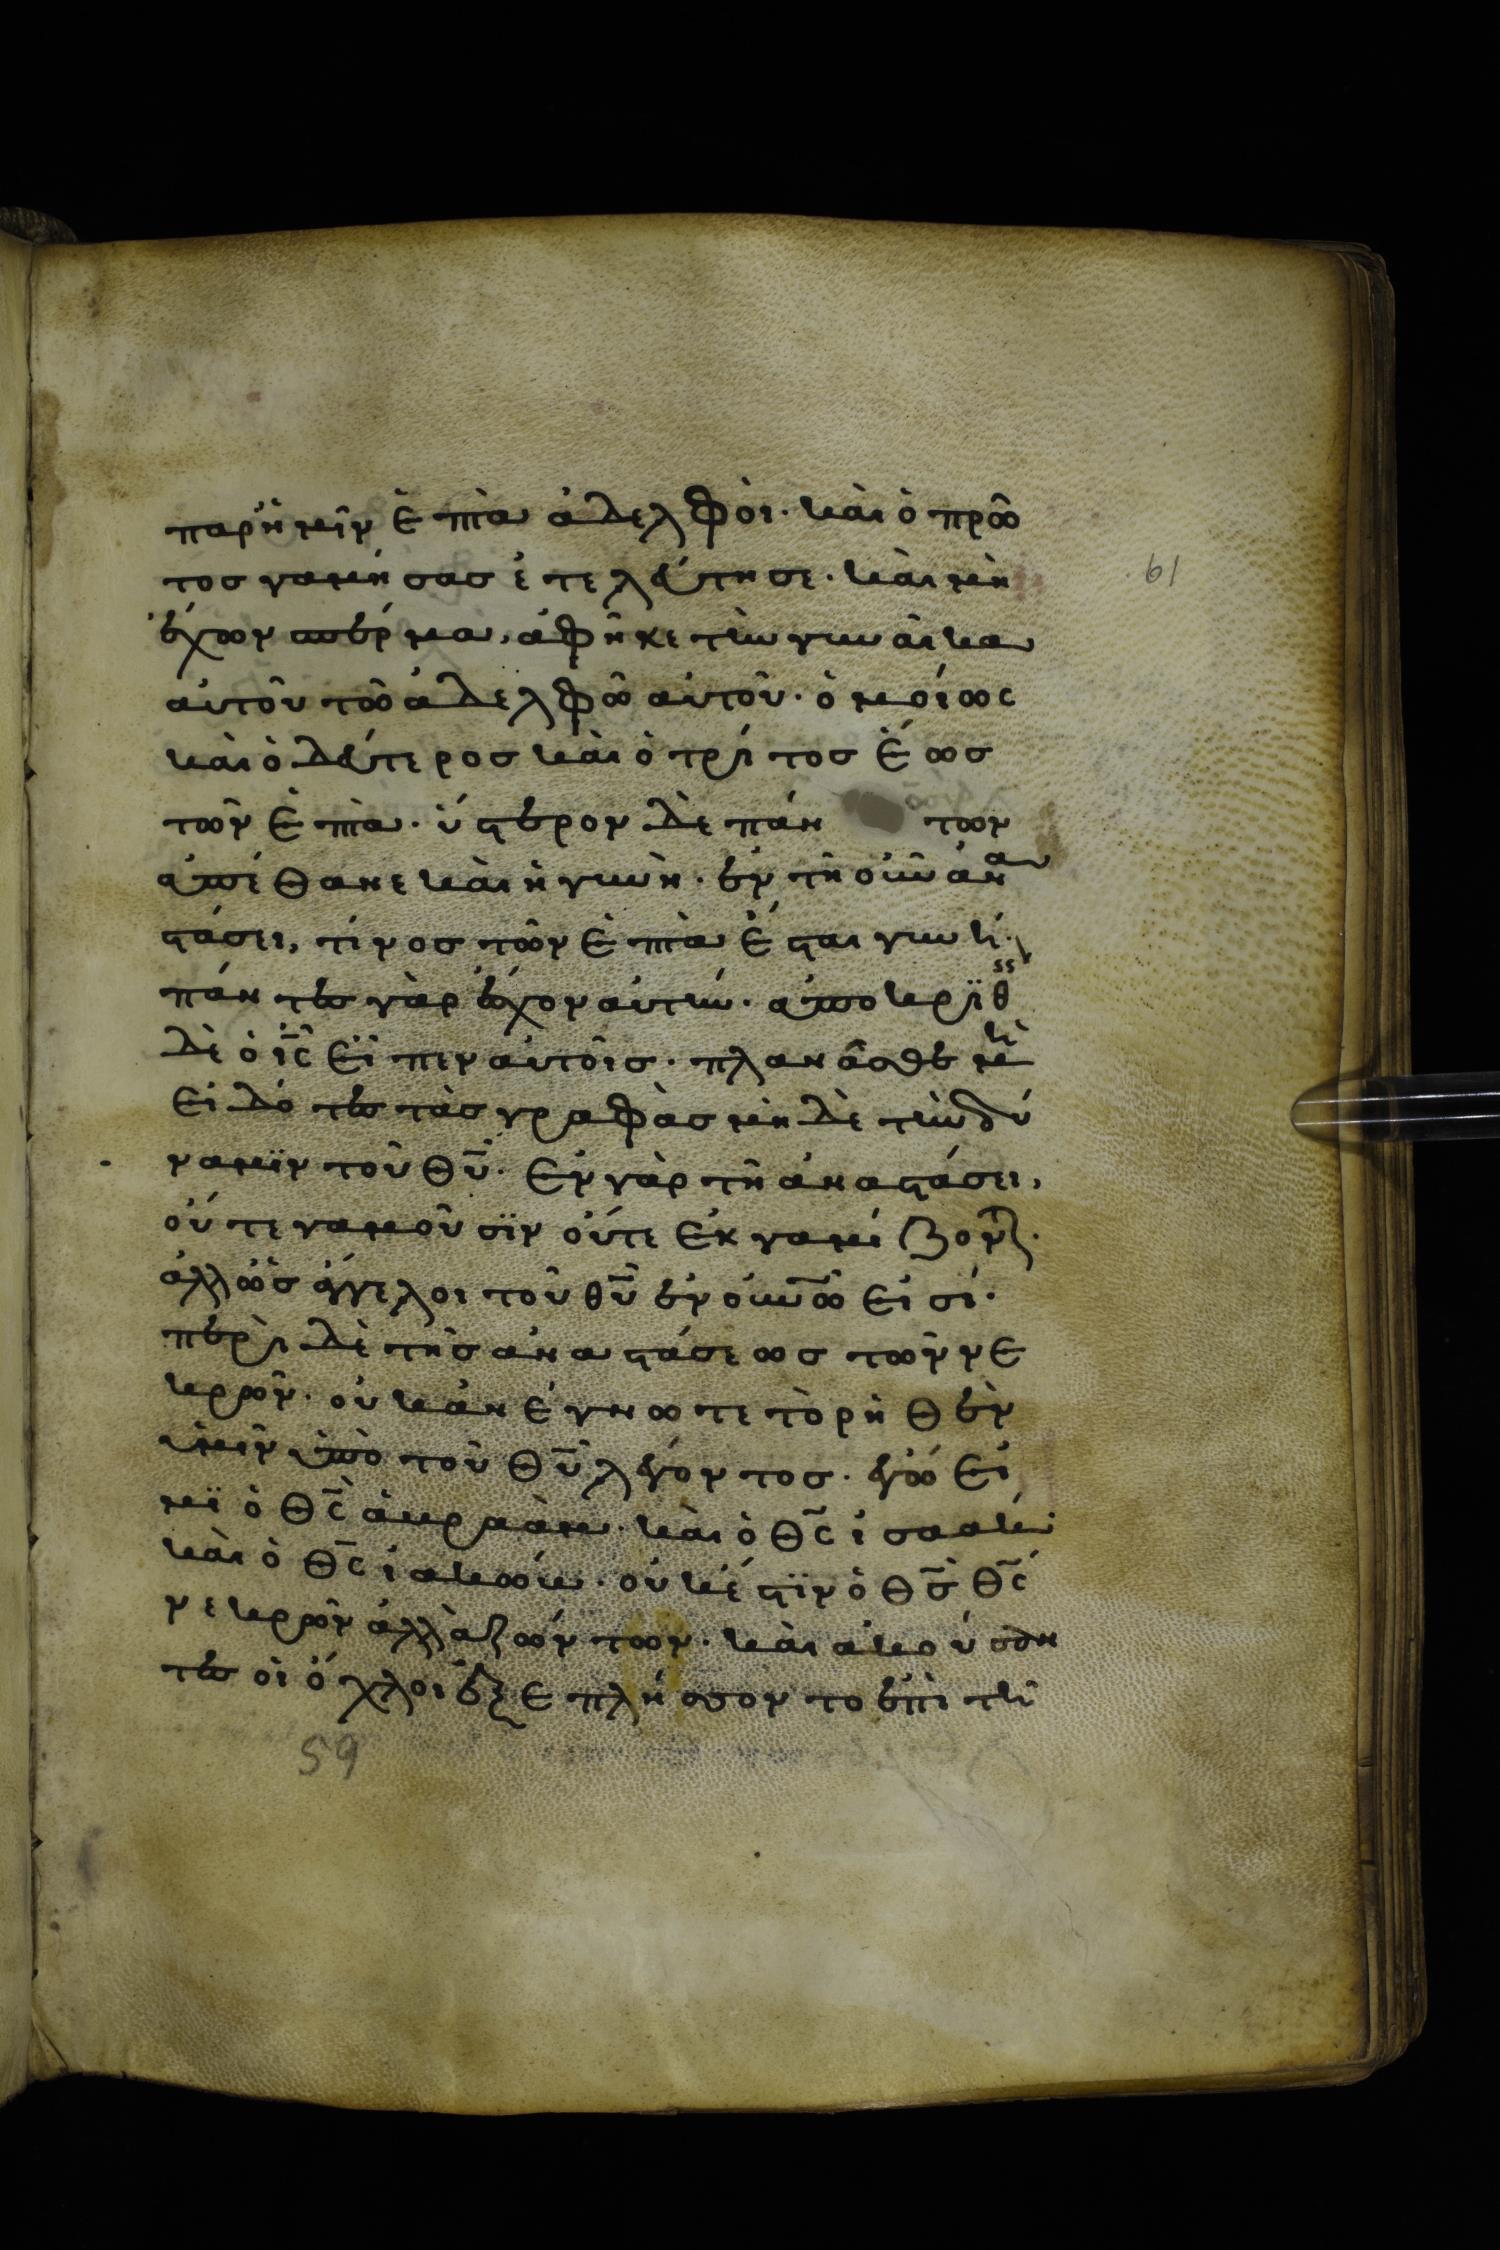 παρ' ἡμῖν ἑπτὰ ἀδελφοὶ· καὶ ὁ πρῶ
τος γαμήσας ἐτελεύτησε· καὶ μὴ
ἔχων σπέρμα, ἀφῆκε τὴν γυναῖκα
αὐτοῦ τῶ ἀδελφῶ αὐτοῦ· ὁμοίως
καὶ ὁ δεύτερος καὶ ὁ τρίτος ἕως
τῶν ἑπτὰ· ὕστερον δὲ πάν των
ἀπέθανε καὶ ἡ γυνὴ· ἐν τῆ οὖν ἀνα
στάσει, τίνος τῶν ἑπτὰ ἔσται γυνή·
πάντες γὰρ ἔσχον αὐτήν· ἀποκριθ
δὲ ὁ ις̅ εἶπεν αὐτοῖς· πλανᾶσθε μὴ
εἰδότες τὰς γραφὰς μηδὲ τὴν δύ
ναμϊν τοῦ θυ̅· ἐν γὰρ τῆ ἀναστάσει,
οὔτε γαμοῦσϊν οὔτε ἐκγαμίζοντ·
ἀλλ' ὡς ἄγγελοι τοῦ θυ̅ ἐν οὐνω̅ εἰσί·
περὶ δὲ τῆς ἀναστάσεως τῶν νε
κρῶν· οὐκ ἀνέγνωτε τὸ ῥηθὲν
ὑμῖν ὑπὸ τοῦ θυ̅ λέγοντος· ἐγώ εἰ
μϊ ὁ θς̅ ἀβραὰμ· καὶ ὁ θς̅ ἰσαάκ·
καὶ ὁ θς̅ ἰακώβ· οὐκ ἔστϊν ὁ θς̅ θς̅
νεκρῶν ἀλλὰ ζώντων· καὶ ἀκούσαν
τες οἱ ὄχλοι ἐξεπλήσσοντο ἐπὶ τῆ
61
59